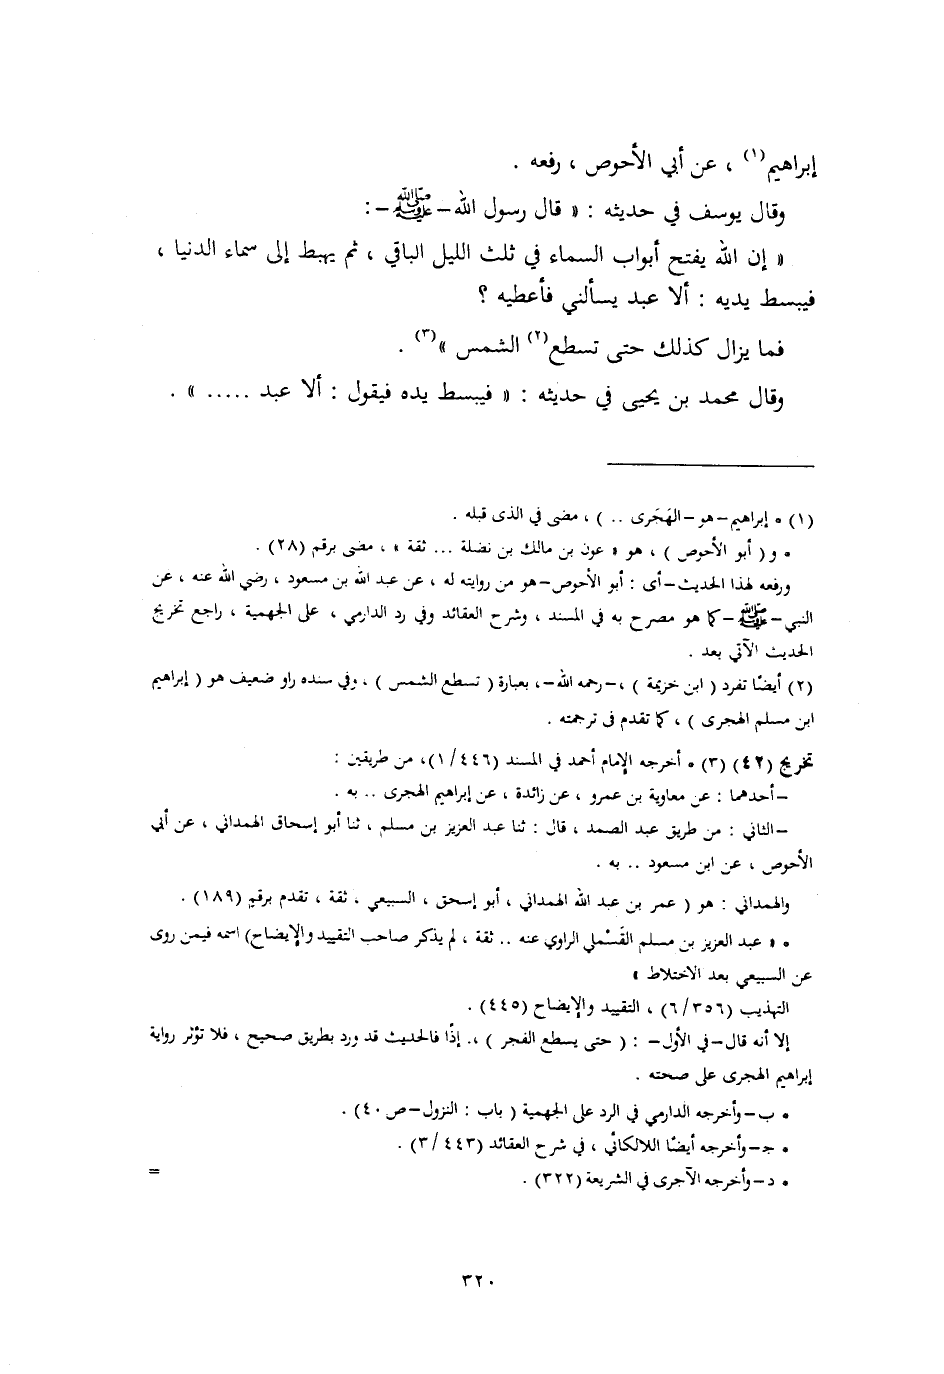 إبراهيم(١) ، عن أبي الأحوص ، رفعه .
وقال يوسف في حديثه : « قال رسول الله – ﷺ – :
« إن الله يفتح أبواب السماء في ثلث الليل الباقي ، ثم يهبط إلى سماء الدنيا ،
فيبسط يديه : ألا عبد يسألني فأعطيه ؟
فما يزال كذلك حتى تسطع(٢) الشمس »(٣) .
وقال محمد بن يحيى في حديثه : « فيبسط يده فيقول : ألا عبد ..... » .
(١) • إبراهيم – هو – الهَجَرى .. ) ، مضى في الذى قبله .
• و ( أبو الأحوص ) ، هو « عون بن مالك بن نضلة ... ثقة » ، مضى برقم (٢٨) .
ورفعه لهذا الحديث – أى : أبو الأحوص – هو من روايته له ، عن عبد الله بن مسعود ، رضي الله عنه ، عن
النبي – ﷺ – كما هو مصرح به في المسند ، وشرح العقائد وفي رد الدارمي ، على الجهمية ، راجع تخريج
الحديث الآتي بعد .
(٢) أيضًا تفرد ( ابن خزيمة ) ، – رحمه الله – ، بعبارة ( تسطع الشمس ) ، وفي سنده راو ضعيف هو ( إبراهيم
ابن مسلم الهجرى ) ، كما تقدم فى ترجمته .
تخريج (٤٢) (٣) • أخرجه الإمام أحمد في المسند (١/٤٤٦) ، من طريقين :
– أحدهما : عن معاوية بن عمرو ، عن زائدة ، عن إبراهيم الهجرى .. به .
– الثاني : من طريق عبد الصمد ، قال : ثنا عبد العزيز بن مسلم ، ثنا أبو إسحاق الهمداني ، عن أبي
الأحوص ، عن ابن مسعود .. به .
والهمداني : هو ( عمر بن عبد الله الهمداني ، أبو إسحق ، السبيعي ، ثقة ، تقدم برقم (١٨٩) .
• « عبد العزيز بن مسلم القَسْملي الراوي عنه .. ثقة ، لم يذكر صاحب التقييد والإيضاح) اسمه فيمن روى
عن السبيعي بعد الاختلاط »
التهذيب (٦/٣٥٦) ، التقييد والإيضاح (٤٤٥) .
إلا أنه قال – في الأول – : ( حتى يسطع الفجر ) ،. إذًا فالحديث قد ورد بطريق صحيح ، فلا تؤثر رواية
إبراهيم الهجرى على صحته .
• ب – وأخرجه الدارمي في الرد على الجهمية ( باب : النزول – ص ٤٠) .
• جـ – وأخرجه أيضًا اللالكائي ، في شرح العقائد (٣/٤٤٣) .
• د – وأخرجه الآجرى في الشريعة (٣٢٢) .
=
٣٢٠